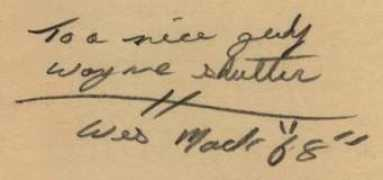 To a nice guy
Wayne Shutter
Wes Mack "68"